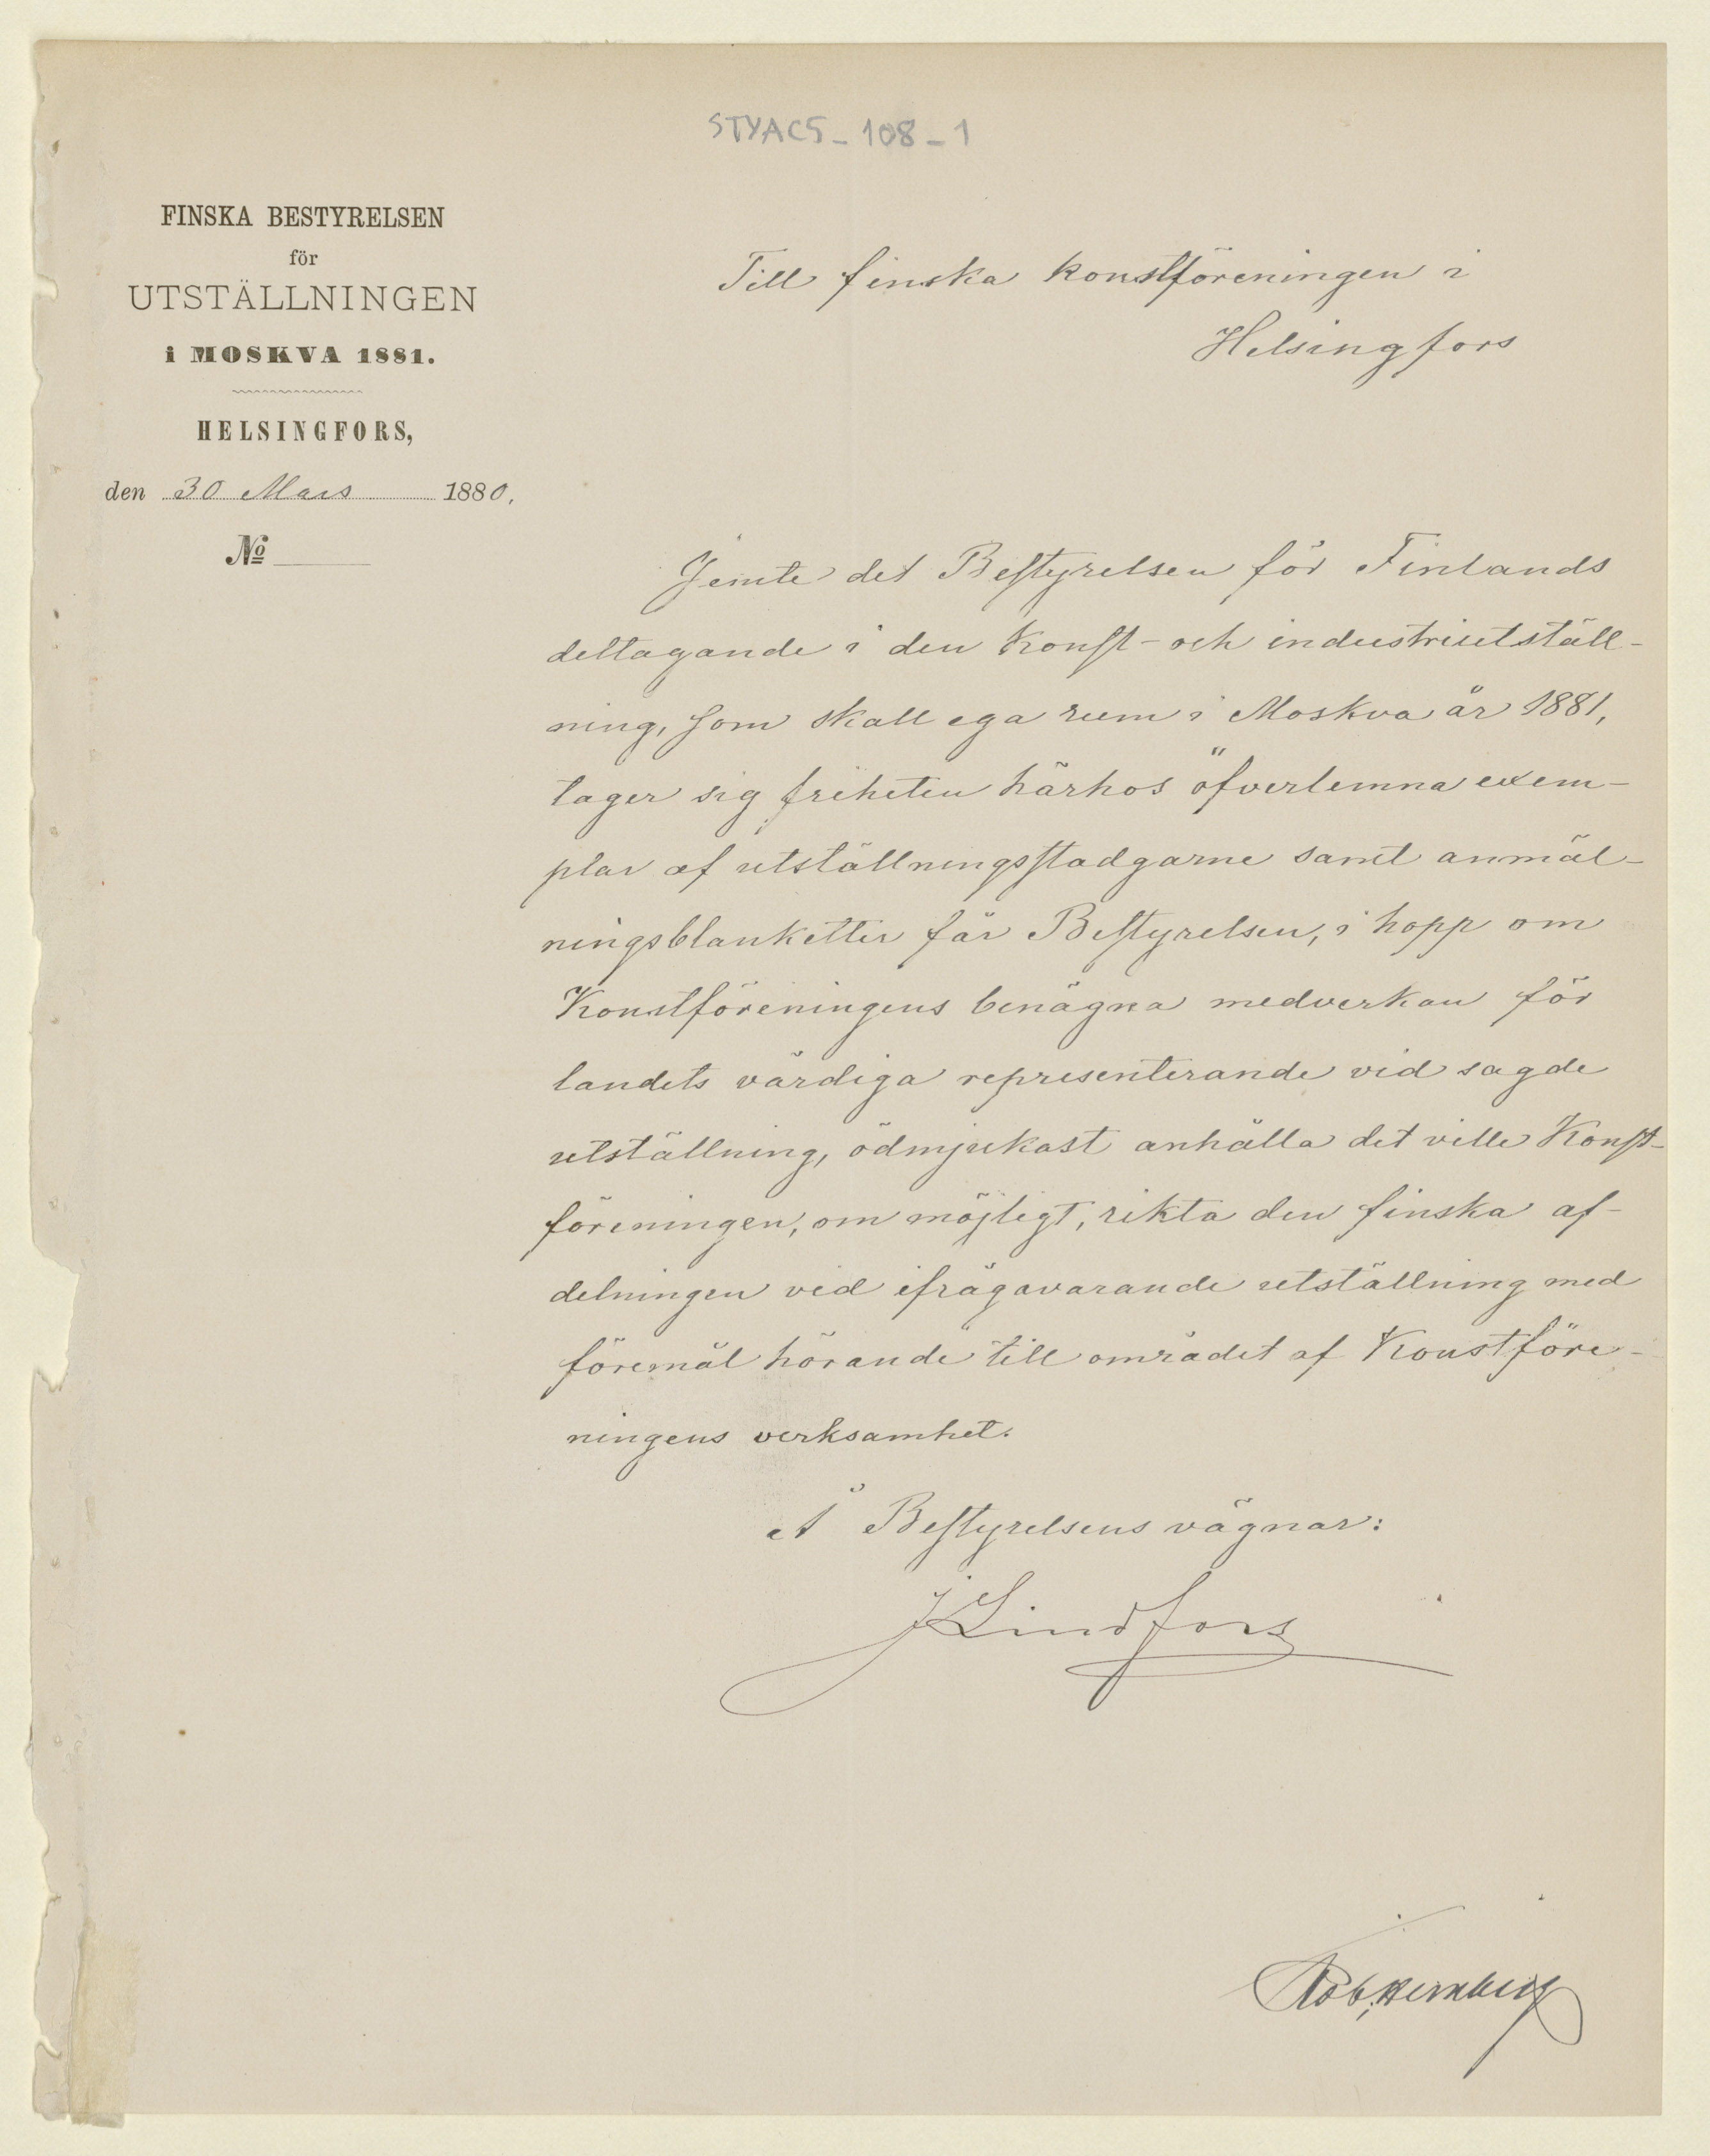 STYACS-108-1
FINSKA BESTYRELSEN
för
UTSTÄLLNINGEN
i MOSKVA 1881.
HELSINGFORS,
den 30 Mars 1880.
No
Till finska konstföreningen i
Helsingfors
Jemte det Bestyrelsen för Finlands
deltagande i den Konst- och industriutställ-
ning, som skall ega rum i Moskva år 1881,
tager sig friheten härhos öfverlemna exem-
plar af utställningsstadgarne samt anmäl-
ningsblanketter får Bestyrelsen, i hopp om
Konstföreningens benägna medverkan för
landets värdiga representerande vid sagde
utställning, ödmjukast anhålla det ville Konst-
föreningen, om möjligt, rikta den finska af-
delningen vid ifrågavarande utställning med
föremål hörande till området af Konstföre-
ningens verksamhet.
Å Bestyrelsens vägnar:
J Lindfors